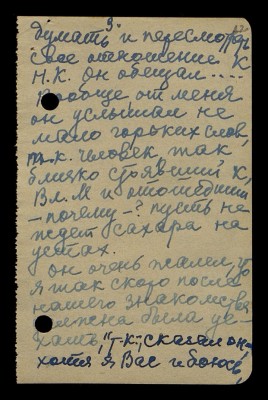 3
думать и пересмотреть
свое отношение к
Н.К. Он обещал....
Вообще от меня
он услышал не
мало горьких слов
т.к. человек так
близко стоявший к
Вл. М и отошедший
– почему –? пусть не
ждет сахара на
устах.
он очень жалел, что
я так скоро после
нашего знакомства
должна была уе-
хать, "т.к., сказал он,
хотя я Вас и боюсь,